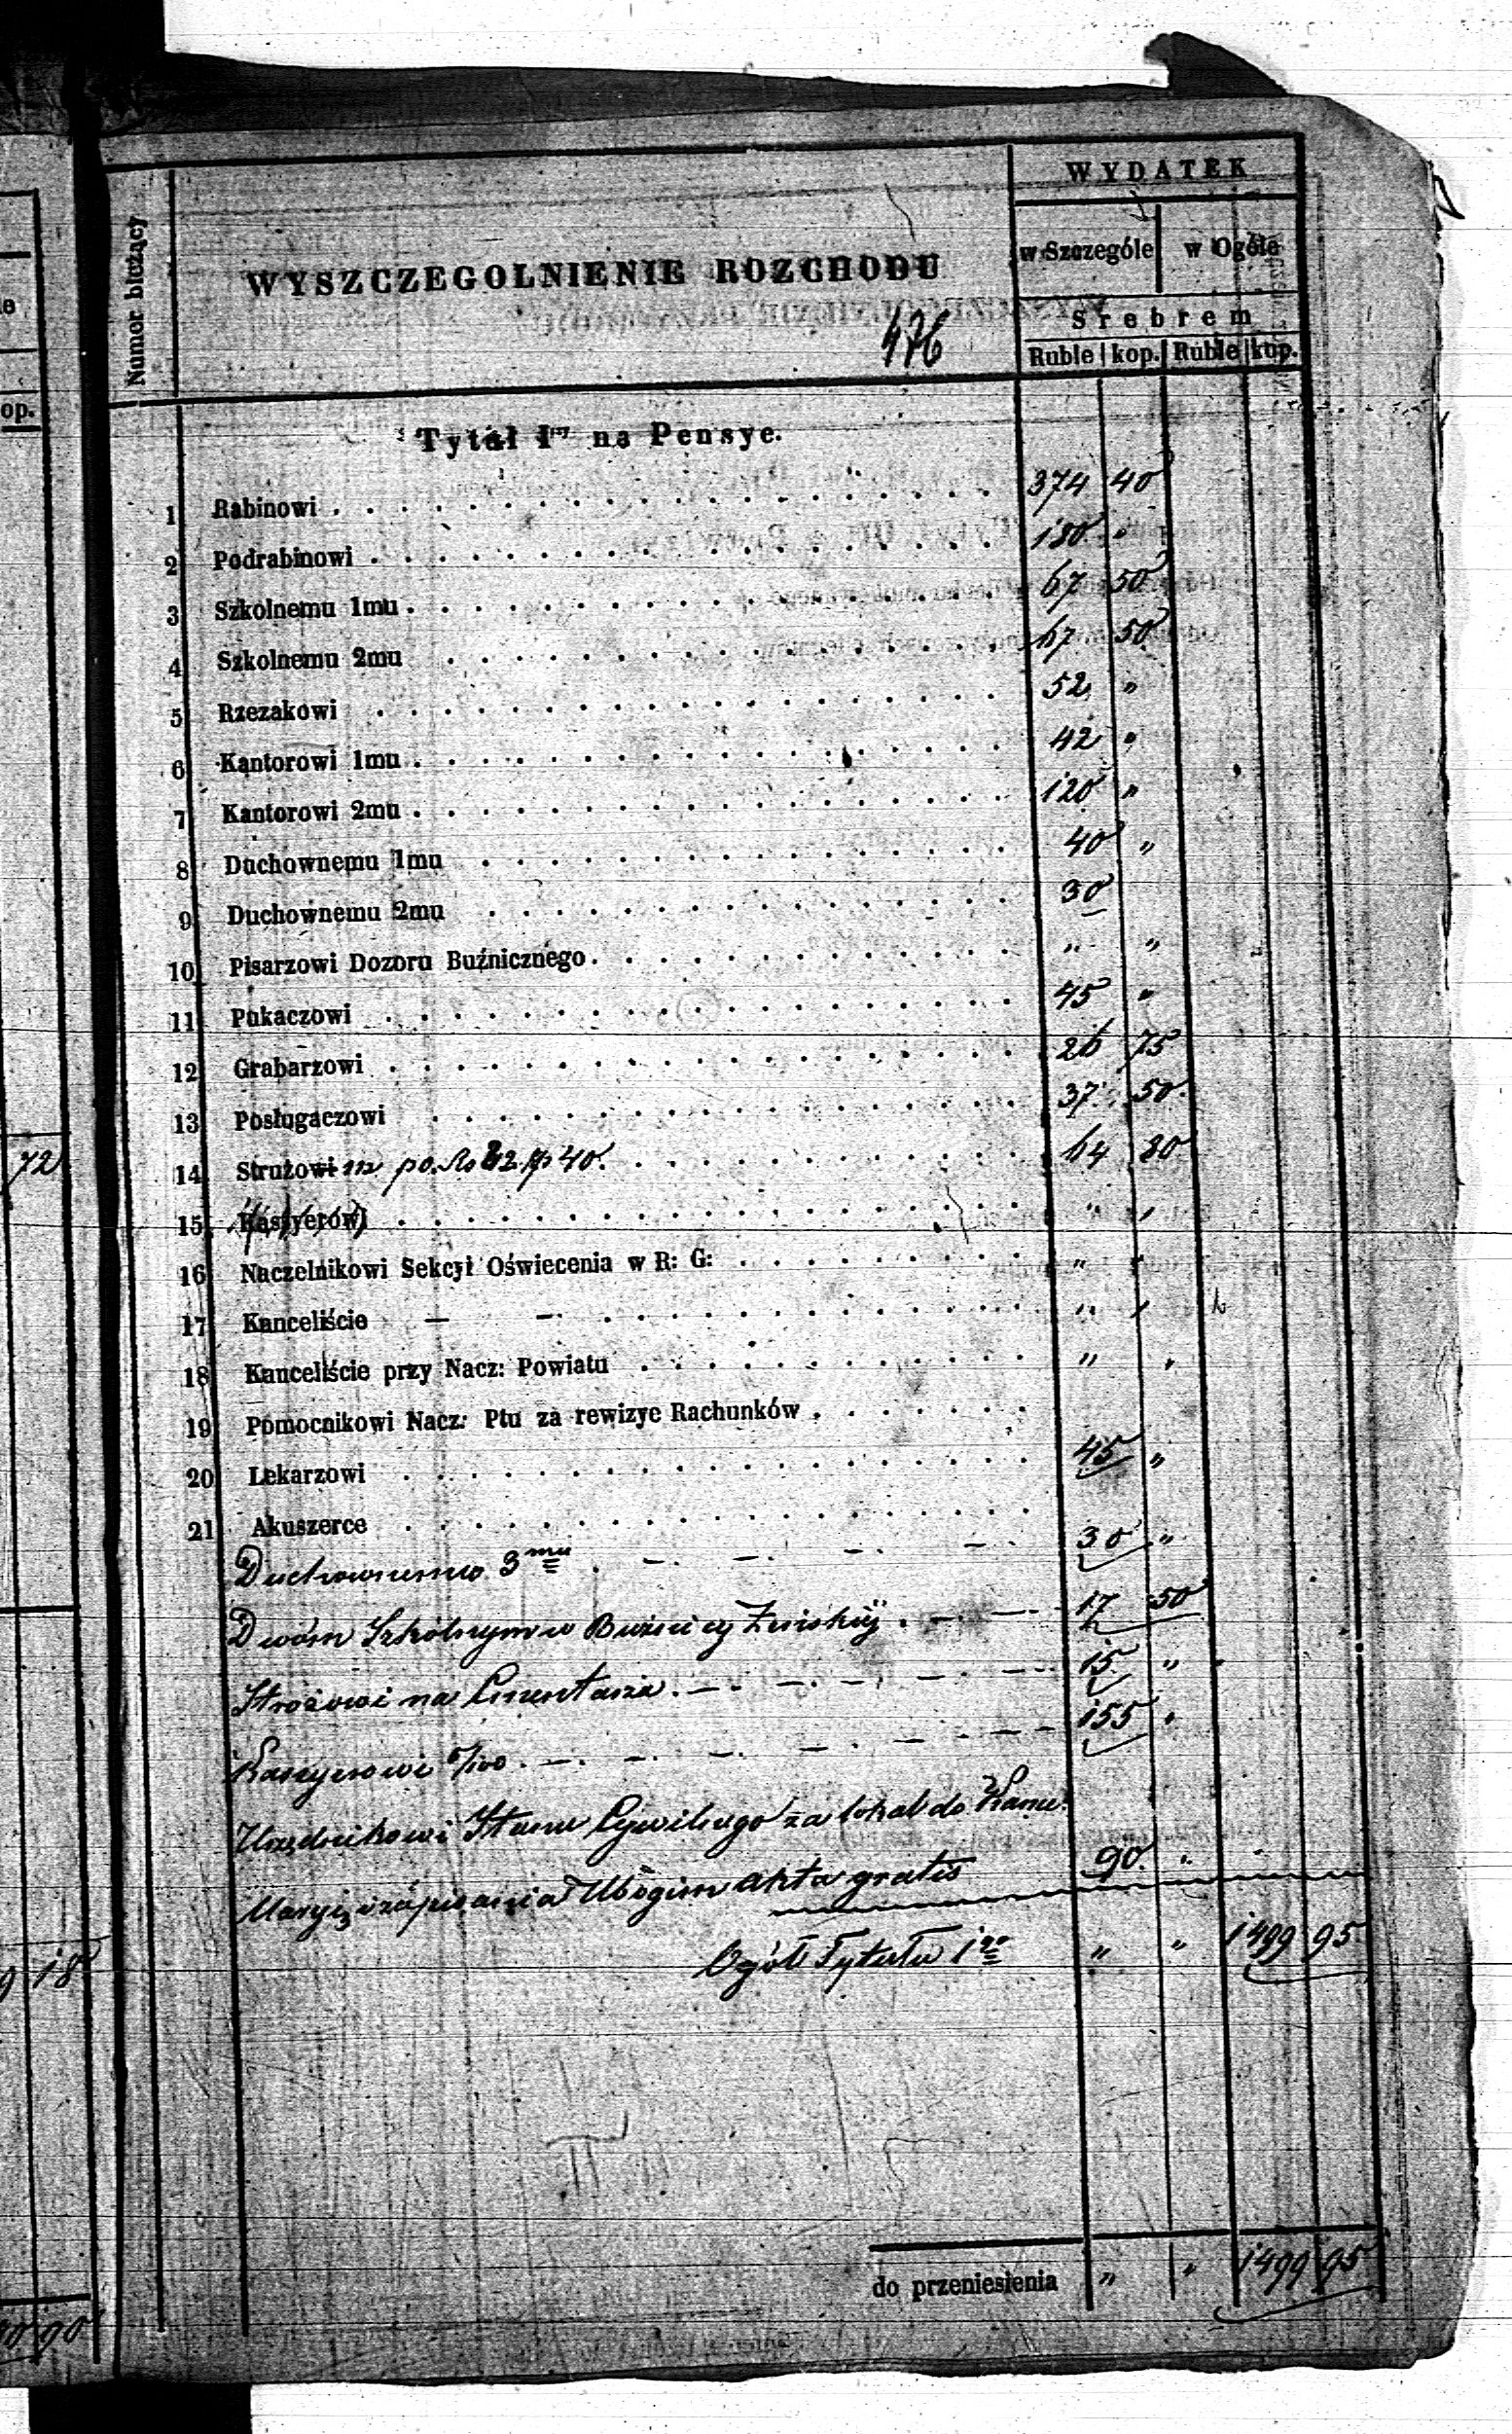 op.
72
18
90
WYDATEK
Numer bieżący
WYSZCZEGOLNIENIE ROZCHODU
w Szczególe w Ogóle
Srebrem
476
Ruble kop. Ruble kop.
Tytuł Iszy na Pensye.
1 Rabinowi . . . 374 40
2 Podrabinowi . . . 180 "
3 Szkolnemu 1mu . . . 67 50
4 Szkolnemu 2mu . . . 67 50
5 Rzezakowi . . . 52 "
6 Kantorowi 1mu . . . 42 "
7 Kantorowi 2mu . . . 120 "
8 Duchownemu 1mu . . . 40 "
9 Duchownemu 2mu . . . 30
10 Pisarzowi Dozoru Buźnicznego . . . " "
11 Pukaczowi . . . 45 "
12 Grabarzowi . . . 26 75
13 Posługaczowi . . . 37 50
14 Strużowi m po Rs 32 kp 40. . . . 64 80
15 Kassyerowi . . . " "
16 Naczelnikowi Sekcyi Oświecenia w R: G: . . . " "
17 Kanceliście — — . . . " "
18 Kanceliście przy Nacz: Powiatu . . . " "
19 Pomocnikowi Nacz: Ptu za rewizye Rachunków . . .
20 Lekarzowi . . . 45 "
21 Akuszerce . . .
Duchownemu 3mu . — . — . — . — 30 "
Dwóm Szkólnym w Bużnicy Żeńskiéj . — . — 17 50
Stróżowi na Cmentarzu . — . — . — . — 15 "
Kassyerowi %100 . — . — . — . — 155 "
Urzędnikowi Stanu Cywilnego za lokal do Kance
laryi, i zapisania Ubogim akta gratis 90 "
Ogół Tytułu 1go " " 1499 95
do przeniesienia " " 1499 95